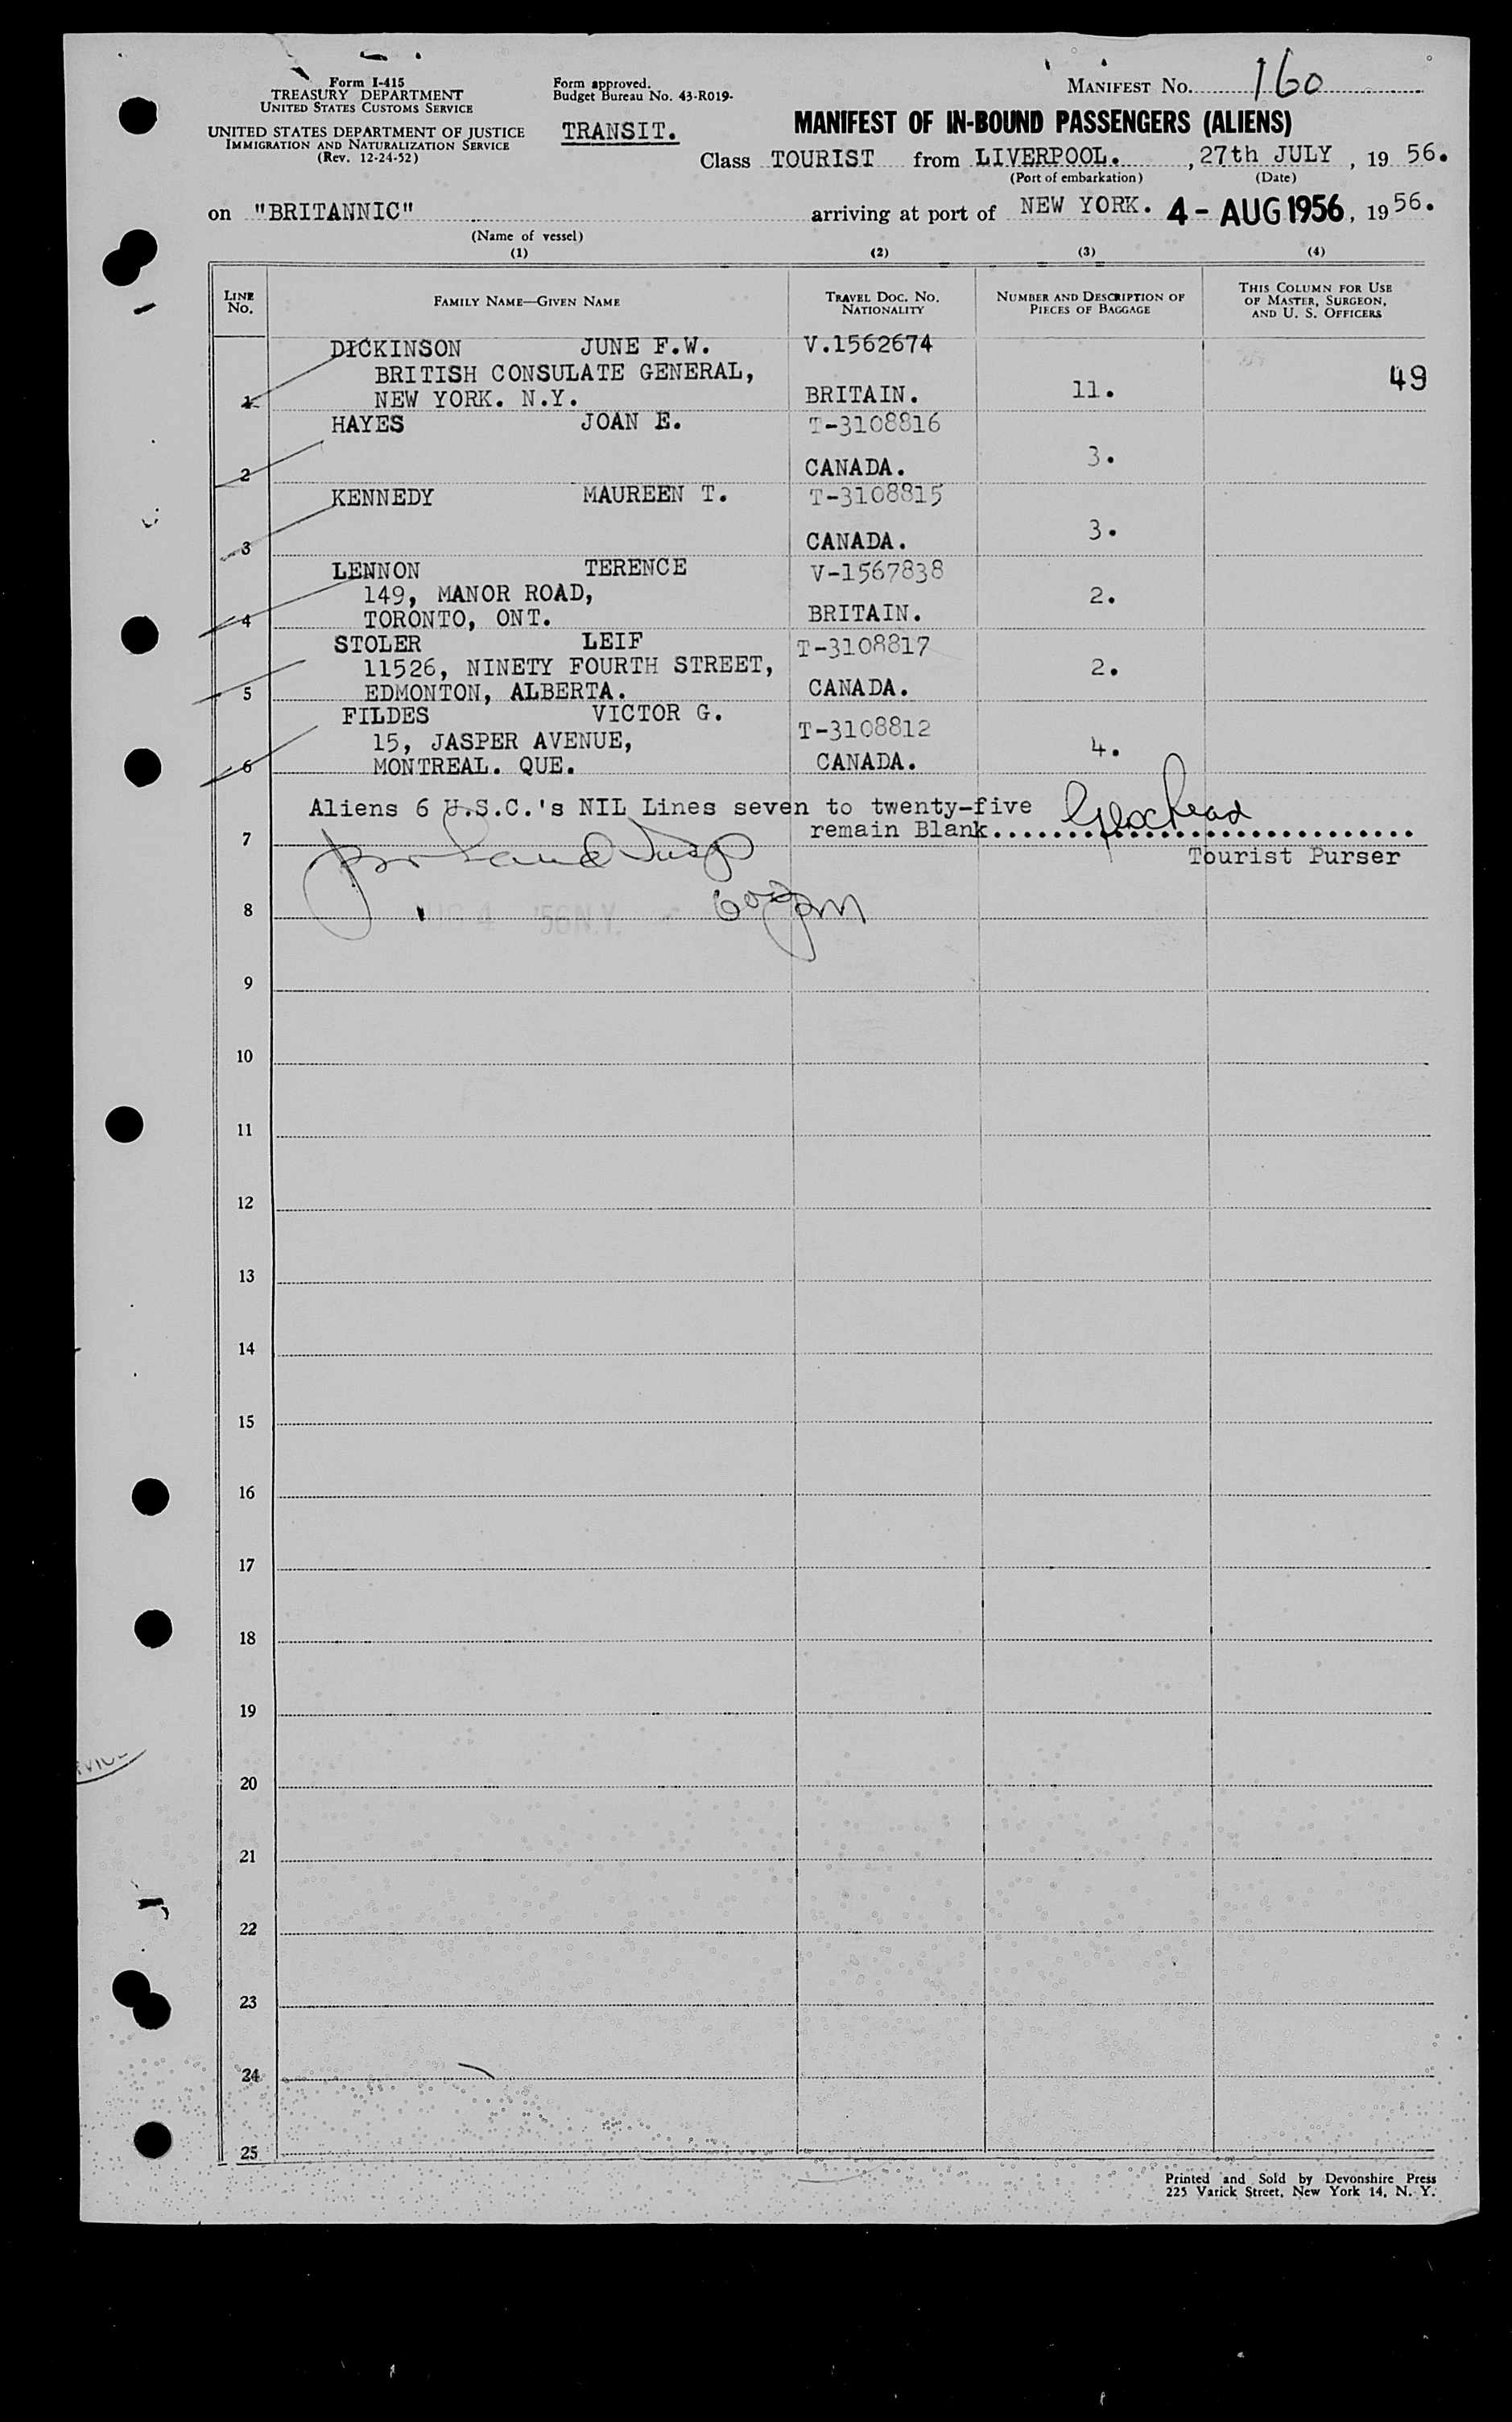 Form I-415
TREASURY DEPARTMENT
UNITED STATES CUSTOMS SERVICE
UNITED STATES DEPARTMENT OF JUSTICE
IMMIGRATION AND NATURALIZATION SERVICE
(Rev. 12-24-52)
Form approved.
Budget Bureau No. 43-R019-
TRANSIT.
MANIFEST NO. 160
MANIFEST OF IN-BOUND PASSENGERS (ALIENS)
Class TOURIST from LIVERPOOL. , 27th JULY , 19 56.
(Port of embarkation) (Date)
on "BRITANNIC" arriving at port of NEW YORK. 4 - AUG 1956 , 19 56.
(Name of vessel)
(1) (2) (3) (4)
LINE NO. FAMILY NAME—GIVEN NAME TRAVEL DOC. NO. NATIONALITY NUMBER AND DESCRIPTION OF PIECES OF BAGGAGE THIS COLUMN FOR USE OF MASTER, SURGEON, AND U. S. OFFICERS
DICKINSON JUNE F.W. V.1562674
BRITISH CONSULATE GENERAL, 49
1 NEW YORK. N.Y. BRITAIN. 11.
HAYES JOAN E. T-3108816
2 CANADA. 3.
KENNEDY MAUREEN T. T-3108815
3 CANADA. 3.
LENNON TERENCE V-1567838
149, MANOR ROAD, 2.
4 TORONTO, ONT. BRITAIN.
STOLER LEIF T-3108817
11526, NINETY FOURTH STREET, 2.
5 EDMONTON, ALBERTA. CANADA.
FILDES VICTOR G. T-3108812
15, JASPER AVENUE, 4.
6 MONTREAL. QUE. CANADA.
Aliens 6 U.S.C.'s NIL Lines seven to twenty-five
7 remain Blank
Tourist Purser
8 AUG 4 '56 N.Y.
9
10
11
12
13
14
15
16
17
18
19
20
21
22
23
24
25
Printed and Sold by Devonshire Press
225 Varick Street, New York 14, N. Y.